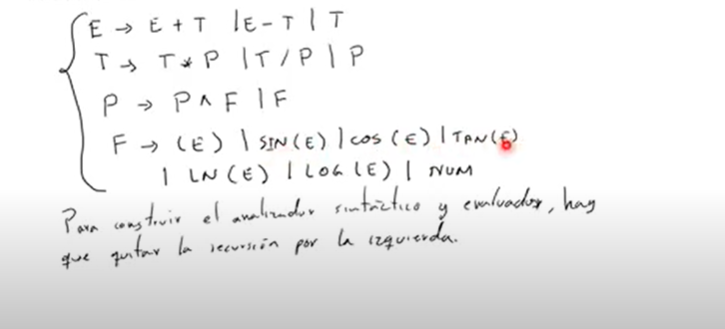 E → E + T | E - T | T
T → T * P | T / P | P
P → P ∧ F | F
F → (E) | SIN(E) | cos(E) | TAN(E)
| LN(E) | LOG(E) | NUM
Para construir el analizador sintáctico y evaluador, hay
que quitar la recursión por la izquierda.